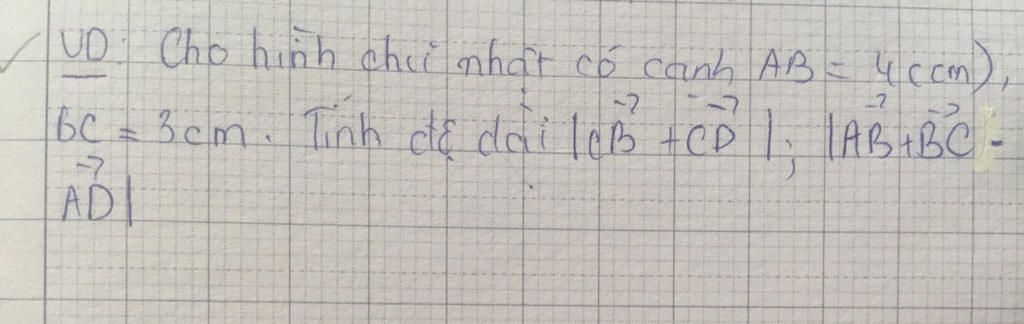 VD: Cho hình chữ nhật có cạnh AB = 4(cm),
BC = 3cm. Tính độ dài |CB⃗ + CD⃗|; |AB⃗ + BC⃗ -
AD⃗|